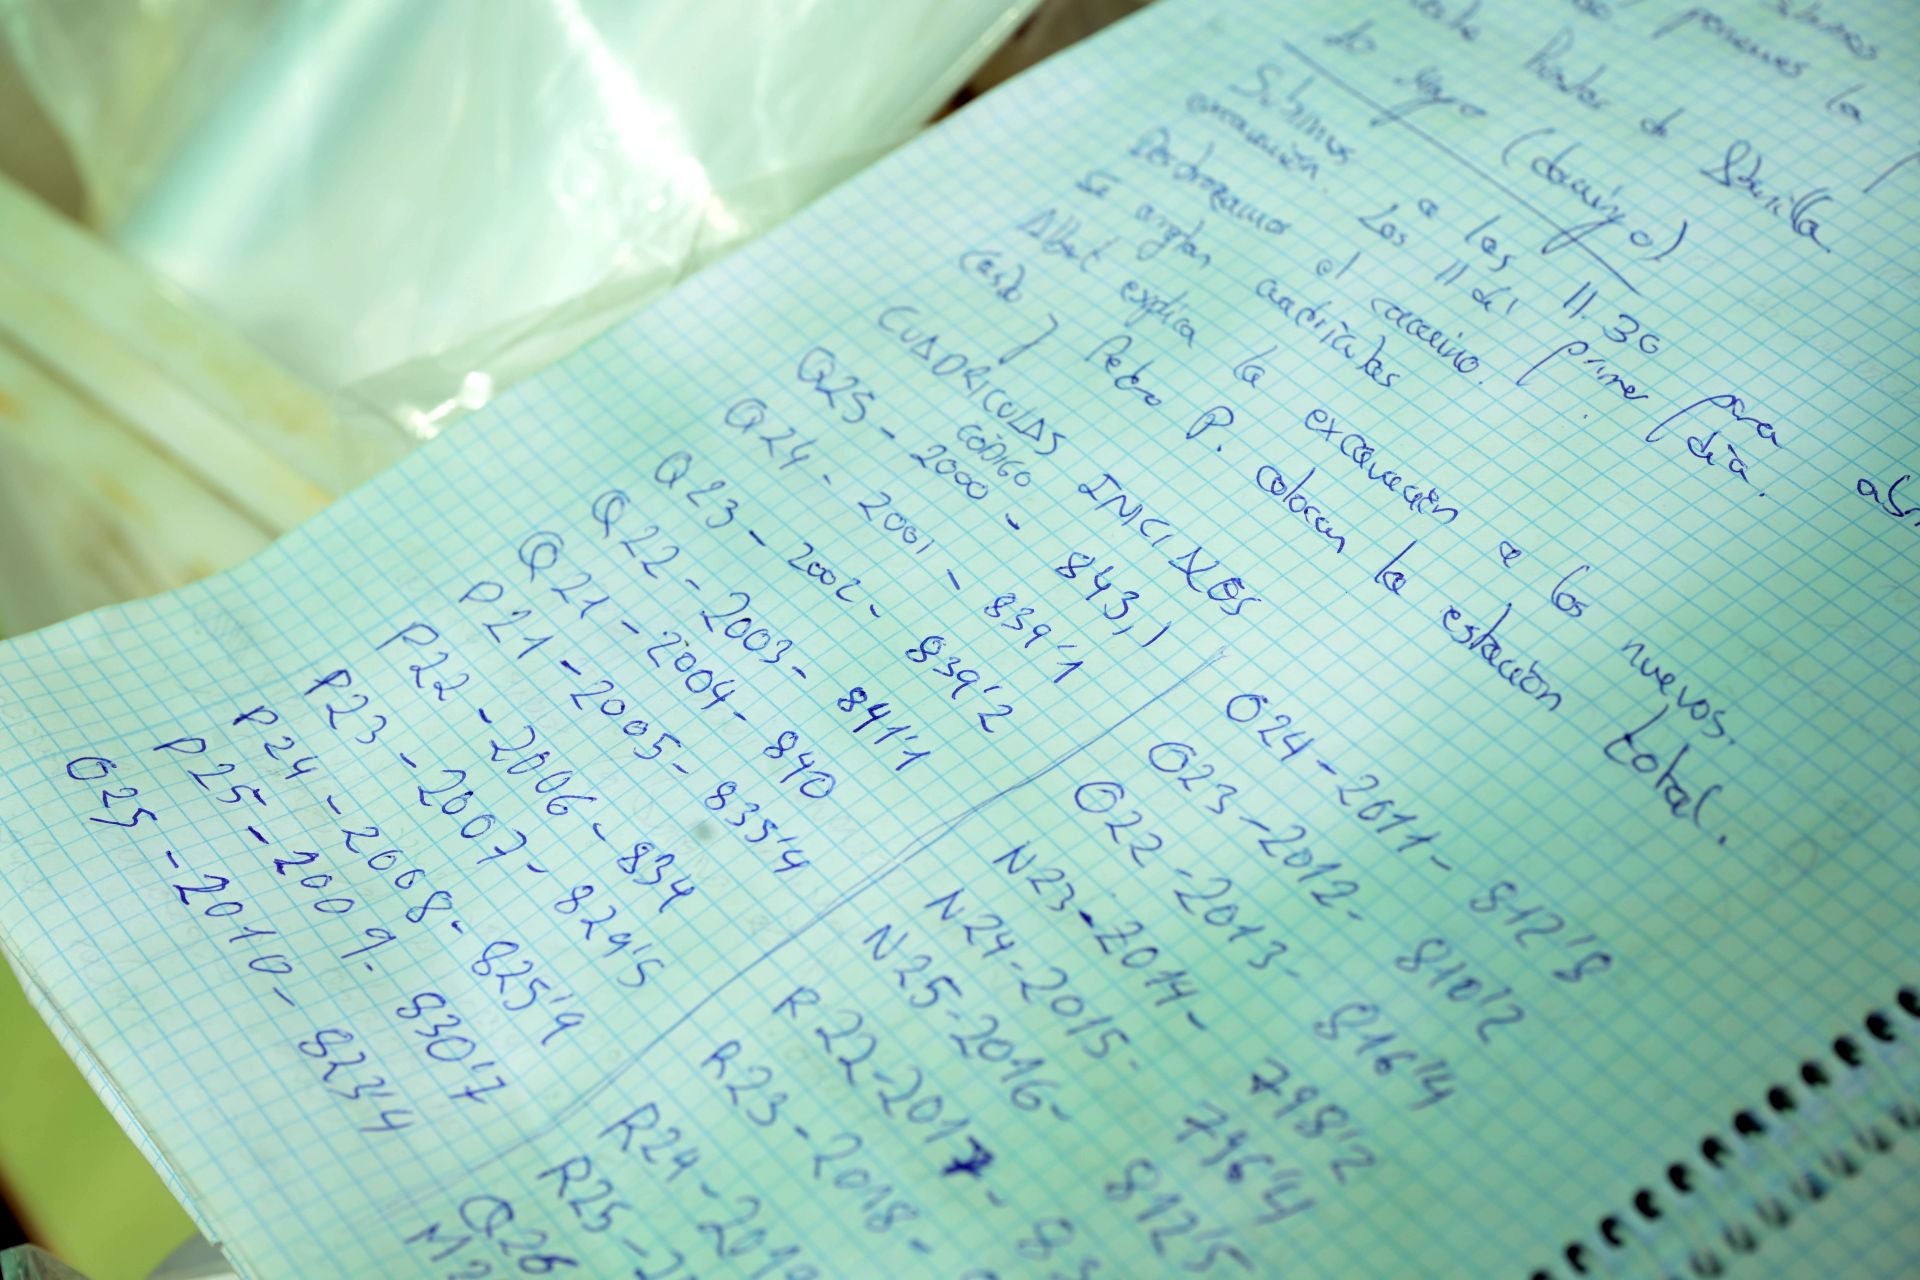 ponemos la
de Mayo (domingo)
Subimos a las 11.30 para
excavación. Los 11 del primer día.
Desbrozamos el camino.
Se arreglan cuadrículas
Albert explica la excavación a los nuevos.
y Pedro P. colocan la estación total.
CUADRICULAS INICIALES
CÓDIGO
Q25 - 2000 - 843,1
Q24 - 2001 - 839'1
Q23 - 2002 - 839'2
Q22 - 2003 - 841'1
Q21 - 2004 - 840
P21 - 2005 - 835'4
P22 - 2006 - 834
P23 - 2007 - 829'5
P24 - 2008 - 825'9
P25 - 2009 - 830'7
O25 - 2010 - 823'4
O24 - 2011 - 812'8
O23 - 2012 - 810'2
O22 - 2013 - 816'4
N23 - 2014 - 798'2
N24 - 2015 - 796'4
N25 - 2016 - 812'5
R22 - 2017 - 83
R23 - 2018 -
R24 - 2019
R25 - 2
Q26
M2